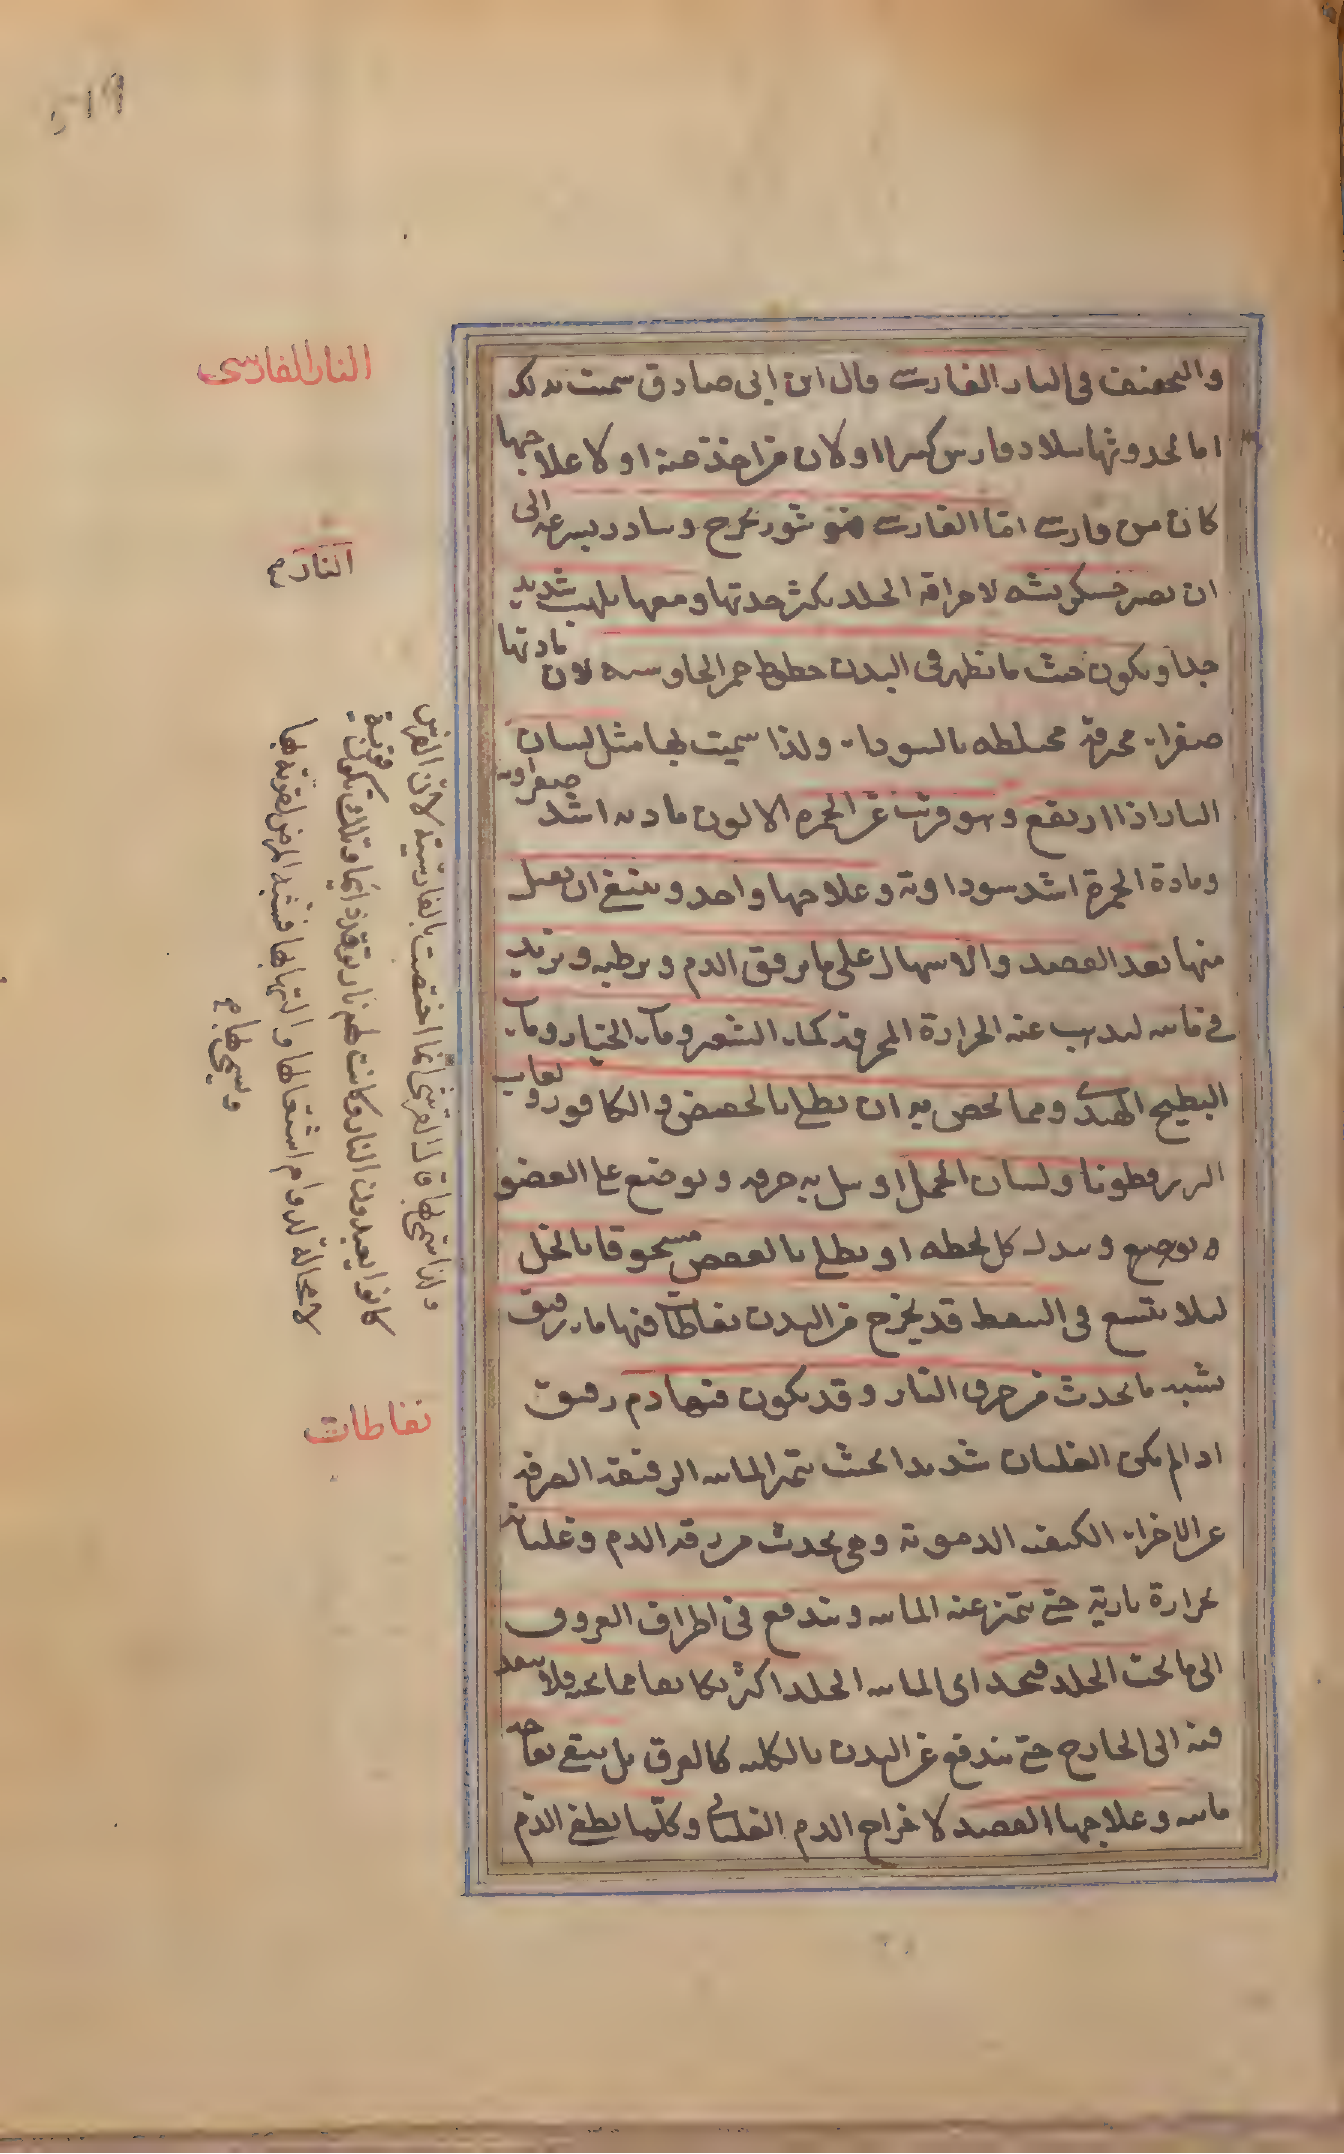 والتجفيف في النار الفارسي قال ابن ابي صادق سميت بذلك
اما لحدوثها ببلاد فارس كثيرا او لان من اخذ عنه اولا علاجها
كان من فارسي اما الفارسي فهو بثور تخرج وتبادر بسرعة الى
ان تصير خشكريشة لاحراقه الجلد بكثر حدتها ومعها تلهب شديد
جدا ويكون حيث ما تظهر في البدن خطوط حمر لان مادتها
صفراء محرقة مختلطة بالسوداء ولذا سميت بها مثل لسان
النار اذا ارتفع وهو قريب من الجمرة الا لون مادته اشد صفراوية
ومادة الجمرة اشد سوداوية وعلاجها واحد وينبغي ان يعمل
منها بعد الفصد والاسهال على ما يرقق الدم ويرطبه ويزيد
في مائيته عنه الحرارة المحرقة كماء الشعير وماء الخيار وماء
البطيخ الهندي ومما يخص به ان يطلى بالحضض والكافور ولعاب
البزرقطونا ولسان الحمل او يبل به خرقه ويوضع على العضو
ويبدل كل لحظه او يطلى بالعفص مسحوقا بالخل
ليلا يتسع في النفط قد يخرج من البدن نفاطات فيها ماء رقيق
يشبه ما يحدث من حرق النار وقد يكون فيها دم رقيق
اذا لم يكن الغليان شديدا بحيث يتميز المائية الرقيقة الصرفة
عن الاجزاء الكثيفة الدموية وهي يحدث من رقة الدم وغليانه
بحرارة نارية حتى يتميز عنه المائية ويندفع في اطراف العروق
الى ما تحت الجلد فتجد اي المائية الجلد اكثر تكاثفا مما تحته فلا ينفذ
منه الى الخارج حتى يندفع عن البدن بالكليه كالعرق بل يبقى تحته
مائية وعلاجها الفصد لاخراج الدم الغلياني وكلما يطفي الدم
النار الفارسى
النار م
ولذا سمي بها قال القرشي انما اختصت بالفارسية لان الفرس
كانوا يعبدون النار وكانت لهم نار توقد دائما وتلك تكون قوية
لا محالة لدوام اشتعالها والتهابها فشبه المرض لقوته بها
وسمي بها م
نفاطات